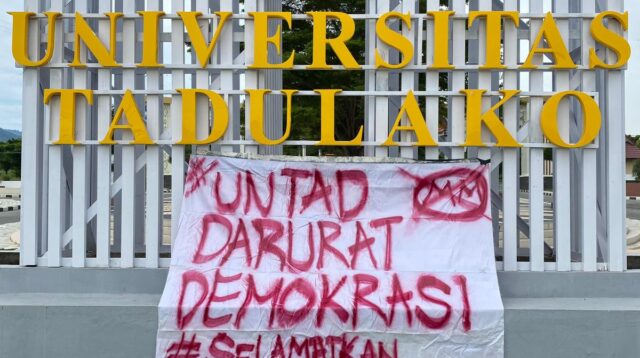 UNIVERSITAS
TADULAKO
#UNTAD
DARURAT
DEMOKRASI
#SELAMATKAN